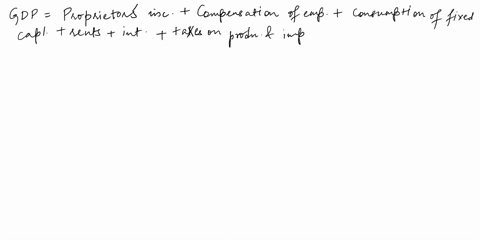 GDP = Proprietors inc. + Compensation of emp. + Consumption of fixed
capl. + rents + int. + taxes on prodn. & imp